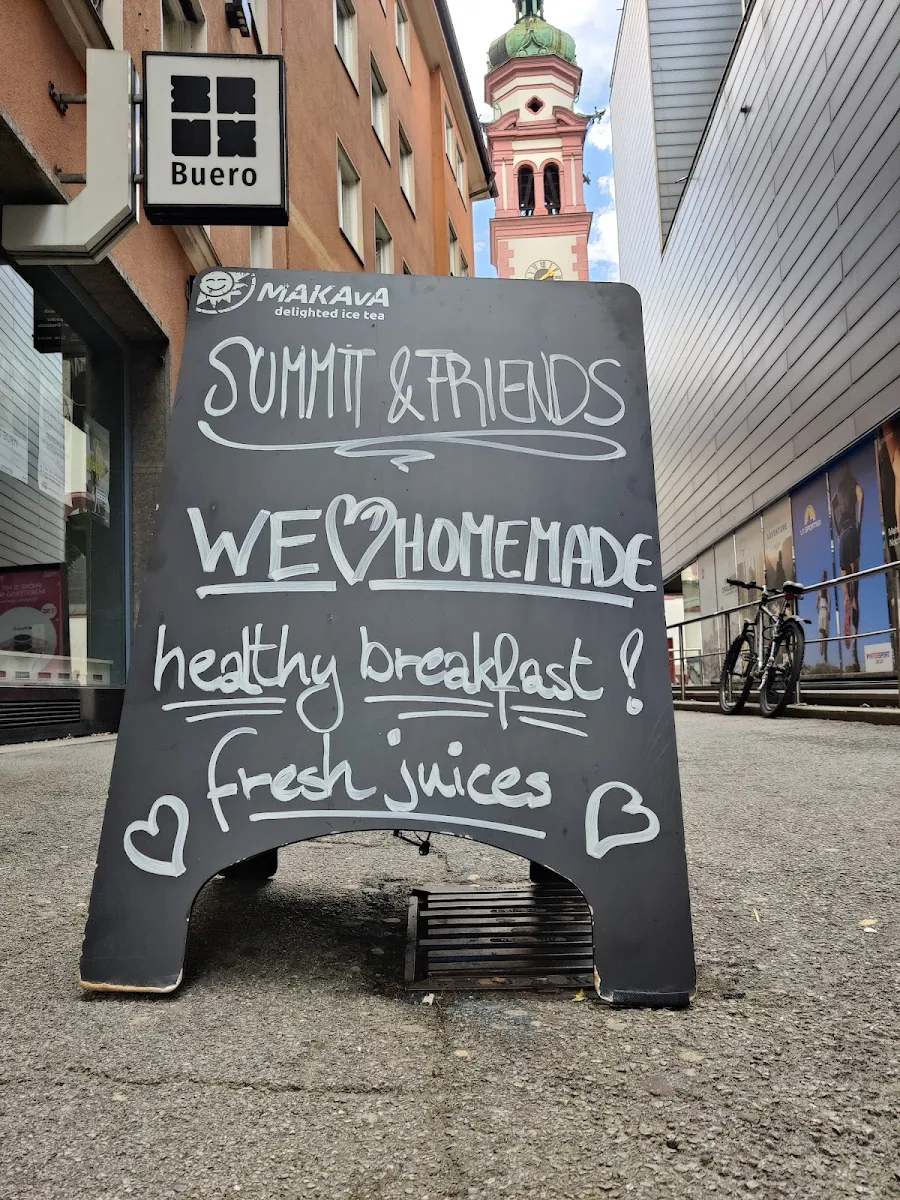 BRUX
Buero
MAKAvA
delighted ice tea
SUMMIT & FRIENDS
WE♡HOMEMADE
healthy breakfast!
fresh juices
LA SPORTIVA
ADVENTURE
INTERSPORT